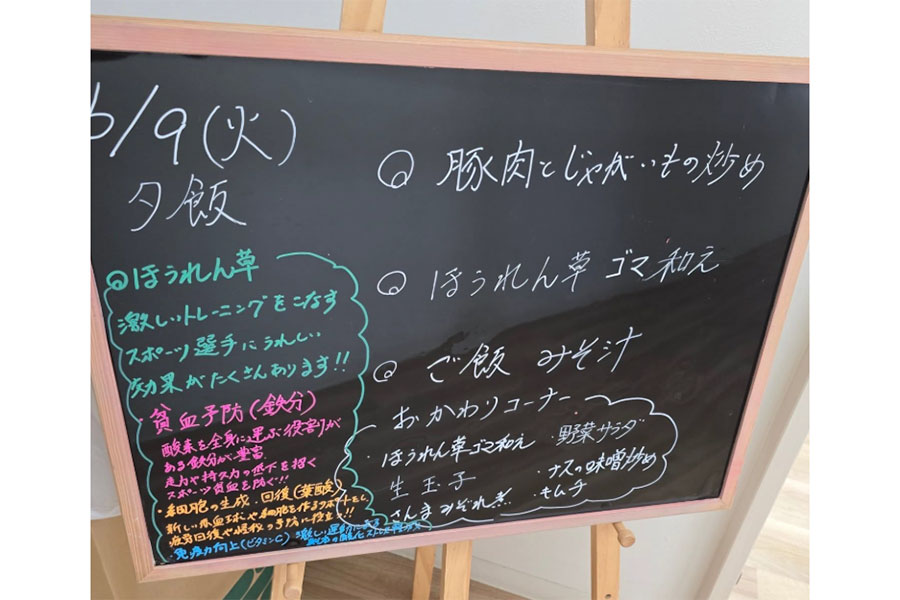 6/9(火)
夕飯
◎ 豚肉とじゃがいもの炒め
◎ ほうれん草 ゴマ和え
◎ ご飯 みそ汁
おかわりコーナー
・ほうれん草ゴマ和え
・野菜サラダ
生玉子
・ナスの味噌炒め
さんまみぞれ煮
・キムチ
◎ほうれん草
激しいトレーニングをこなす
スポーツ選手にうれしい
効果がたくさんあります!!
貧血予防(鉄分)
酸素を全身に運ぶ役割が
ある鉄分が豊富
走力や持久力の低下を招く
スポーツ貧血を防ぐ!!
・細胞の生成・回復(葉酸)
新しい赤血球や細胞を作るサポートをし
疲労回復や怪我の予防に役立つ!!
・免疫力向上(ビタミンC)
激しい運動による